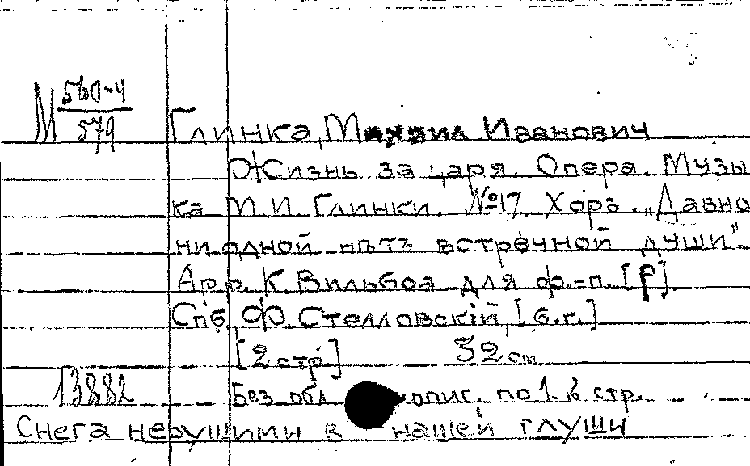 М 560-4/579
Глинка, Михаил Иванович
Жизнь за царя. Опера. Музы
ка М.И. Глинки. №17. Хоръ. „Давно
ни одной нѣтъ встречной души"
Арр. К. Вильбоа для ф.-п. [Р].
Спб, Ф. Стелловскiй, [б.г.]
[2 стр] 32 см
13882 Без обл опис. по 1-й стр.
Снега нерушими в нашей глуши